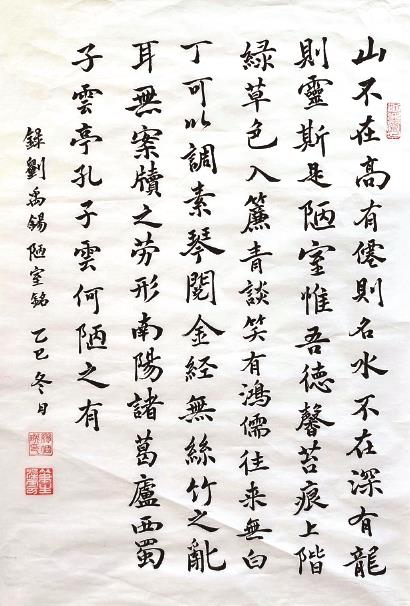 山不在高有僊則名水不在深有龍
則靈斯是陋室惟吾德馨苔痕上階
綠草色入簾青談笑有鴻儒往来無白
丁可以調素琴閱金经無絲竹之亂
耳無案牘之勞形南陽諸葛廬西蜀
子雲亭孔子雲何陋之有
錄劉禹锡陋室銘 乙巳冬日